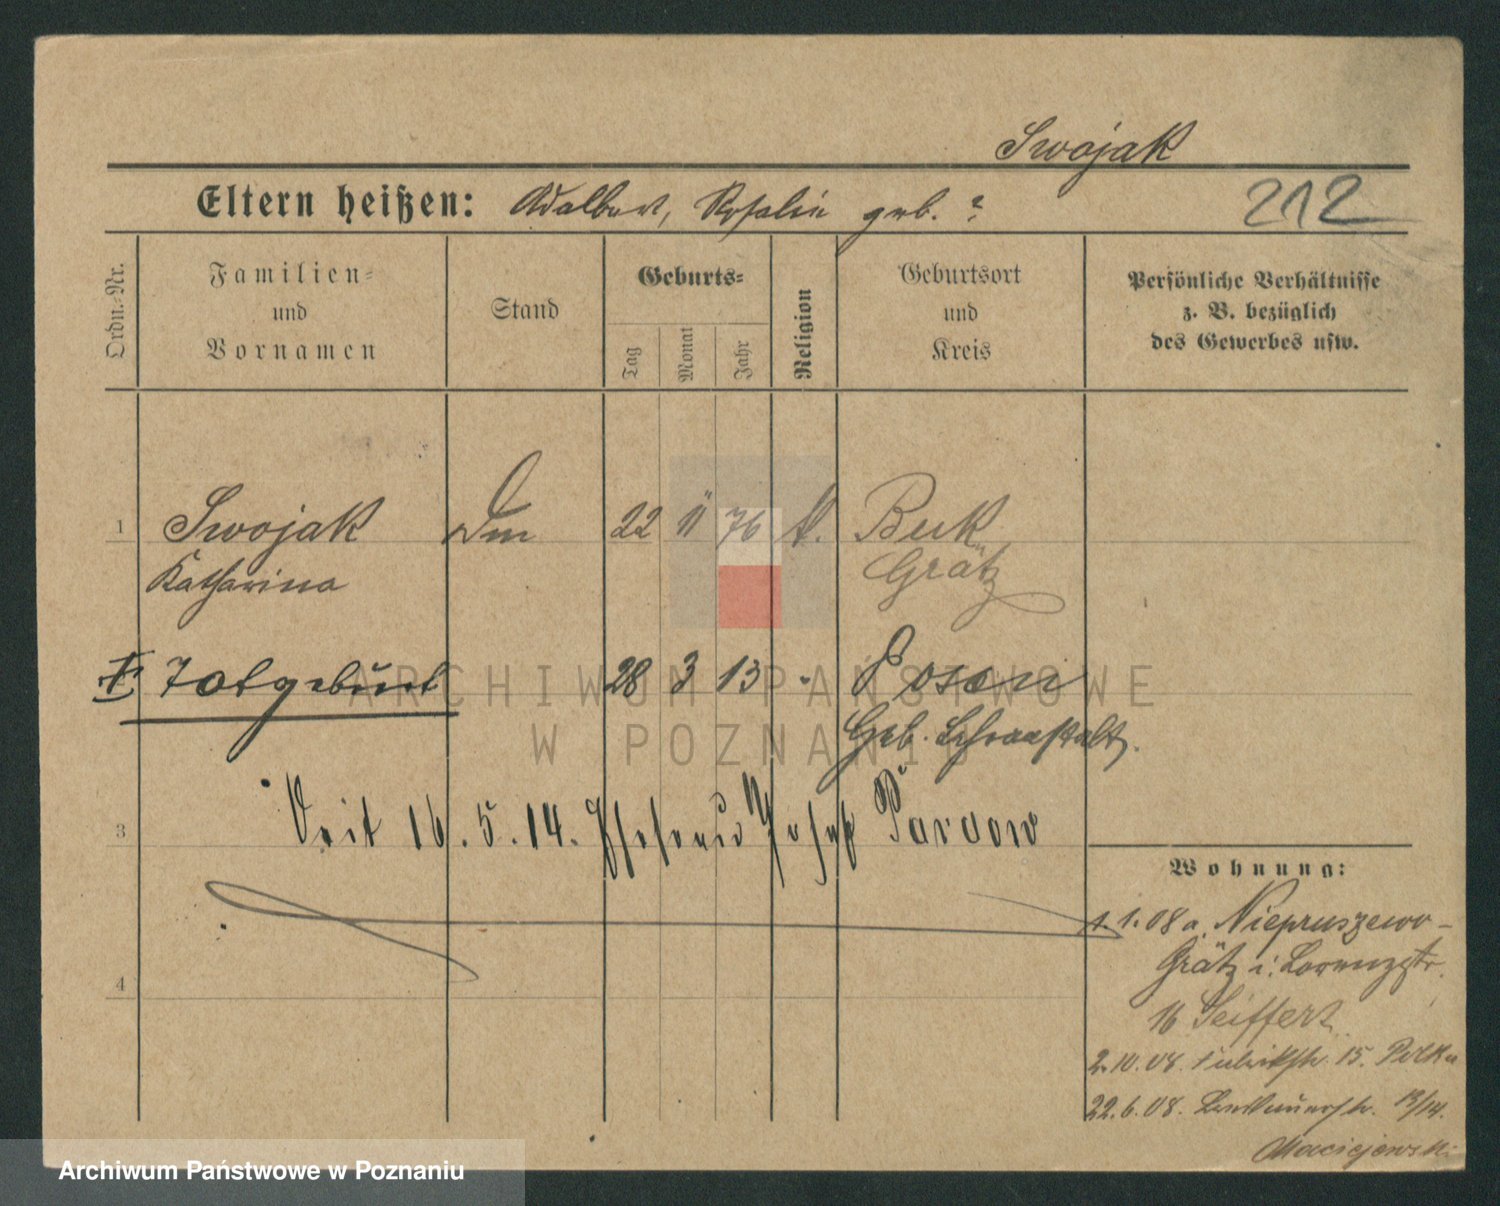 Swojak
Eltern heißen: Adalbert, Rosalie geb. ?
212
Ordn.-Nr.
Familien-
und
Vornamen
Stand
Geburts-
Tag
Monat
Jahr
Religion
Geburtsort
und
Kreis
Persönliche Verhältnisse
z. B. bezüglich
des Gewerbes usw.
1 Swojak Dm 22 11 76 k. Buk
Katharina Grätz
Totgeburt 28 3 13 - Posen
Geb. Lehranstalt.
Seit 16.5.14. Ehefrau Josef
3
Wohnung:
1.1.08 a. Niepruszewo-
Grätz i. Lorenzstr.
16 Seiffert
4
2.10.08. 15.
22.6.08. 13/14.
Maciejewski
ARCHIWUM PAŃSTWOWE
W POZNANIU
Archiwum Państwowe w Poznaniu